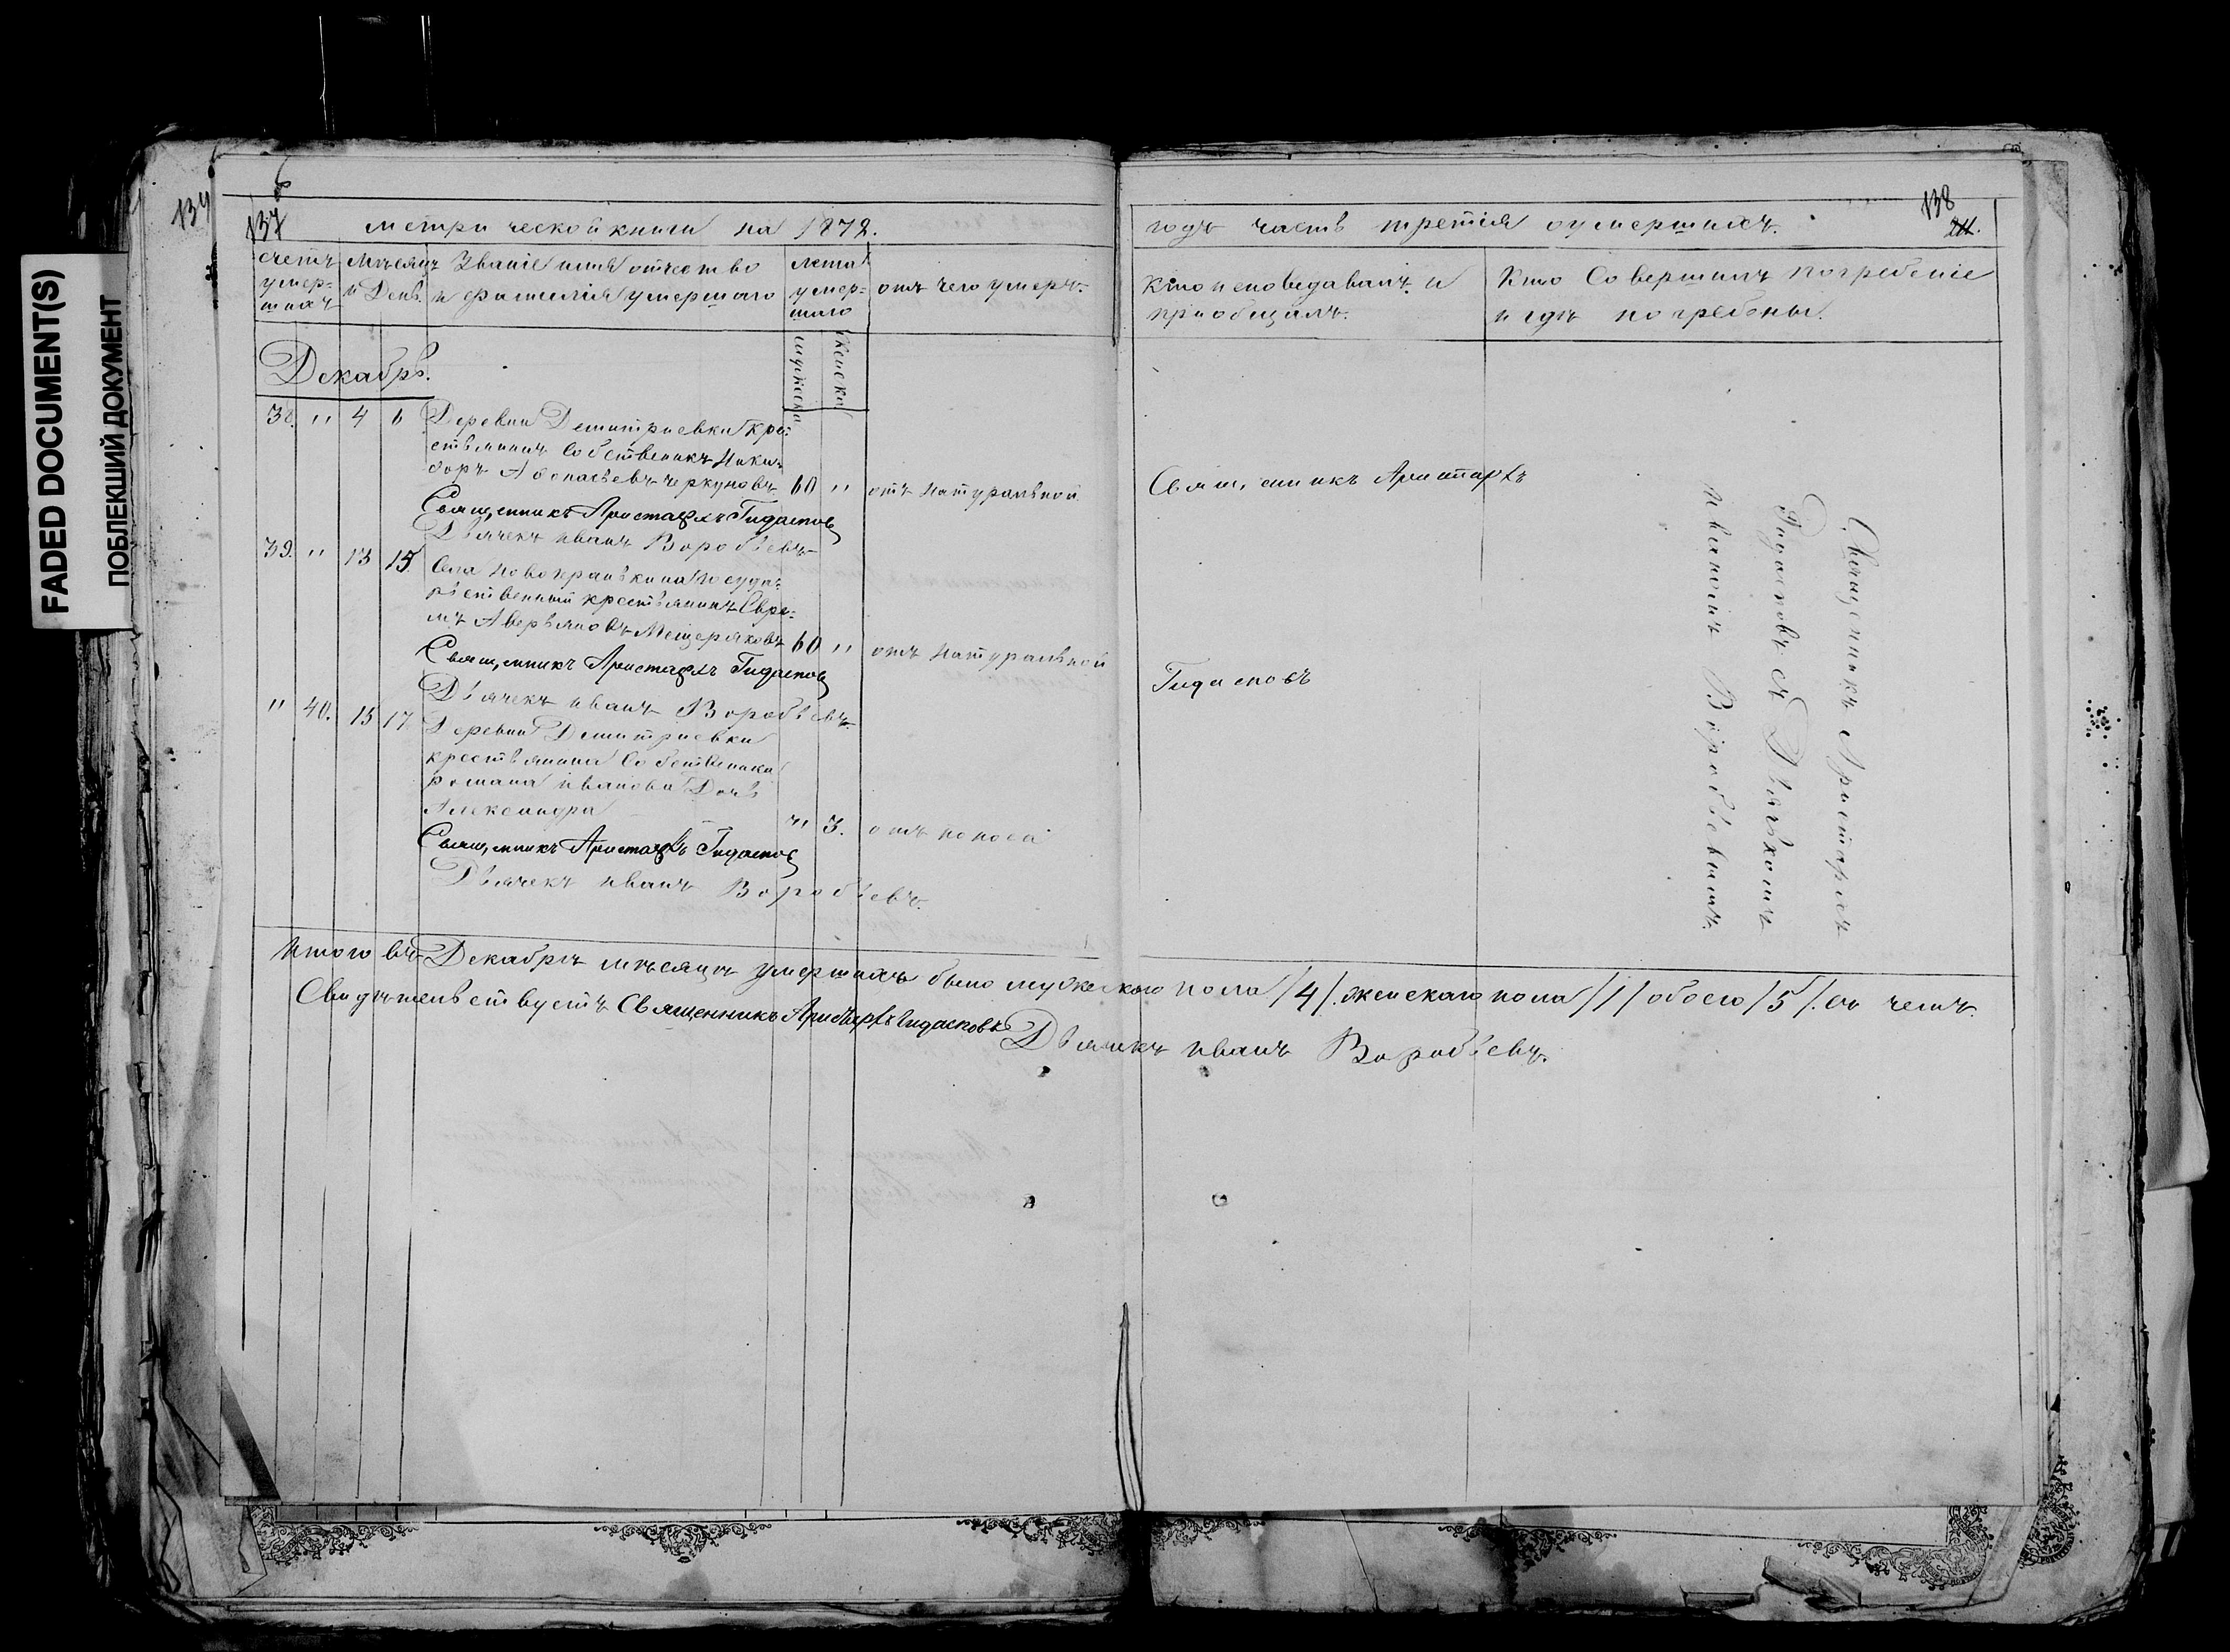 FADED DOCUMENT(S)
ПОБЛЕКШИЙ ДОКУМЕНТ
134
137
метрической книги на 1872.
счетъ умер- шихъ
Мѣсяцъ и День.
Званіе имя отчество и фамилія умершаго
лета умер- шаго
отъ чего умеръ.
мужеска
женска
Декабрь.
38. " 4 6 Деревни Демитриевки Кре-
стьянинъ Собственикъ Ники-
форъ Афонасьевъ черкуновъ 60 " отъ натуральной
Священникъ Аристархъ Гидасповъ
Дьячекъ иванъ Воробьевъ
39. " 13 15 Села
государ-
ственный крестьянинъ Ефре-
мъ Аверьяновъ Мещеряковъ 60 " отъ натуральной
Священникъ Аристархъ Гидасповъ
Дьячекъ иванъ Воробьевъ.
" 40. 15 17 Деревни Демитриевки
крестьянина Собственика
романа иванова Дочь
Александра " 3. отъ поноса
Священникъ Аристархъ Гидасповъ
Дьячекъ иванъ Воробьевъ.
138
годъ часть третія оумершихъ.
Кто исповедавалъ и приобщалъ.
Кто Совершилъ погребеніе и гдѣ погребены.
Священникъ Аристархъ
Гидасповъ
Священникъ Аристархъ
Гидасповъ съ Дьячкомъ
Иваномъ Воробьевымъ.
Итого въ Декабрѣ мѣсяцѣ умершихъ было мужескаго пола /4/. женскаго пола /1/ обоего /5/. Въ чемъ
Свидѣтельствуетъ Священникъ Аристархъ Гидасповъ
Дьячекъ иванъ Воробьевъ.